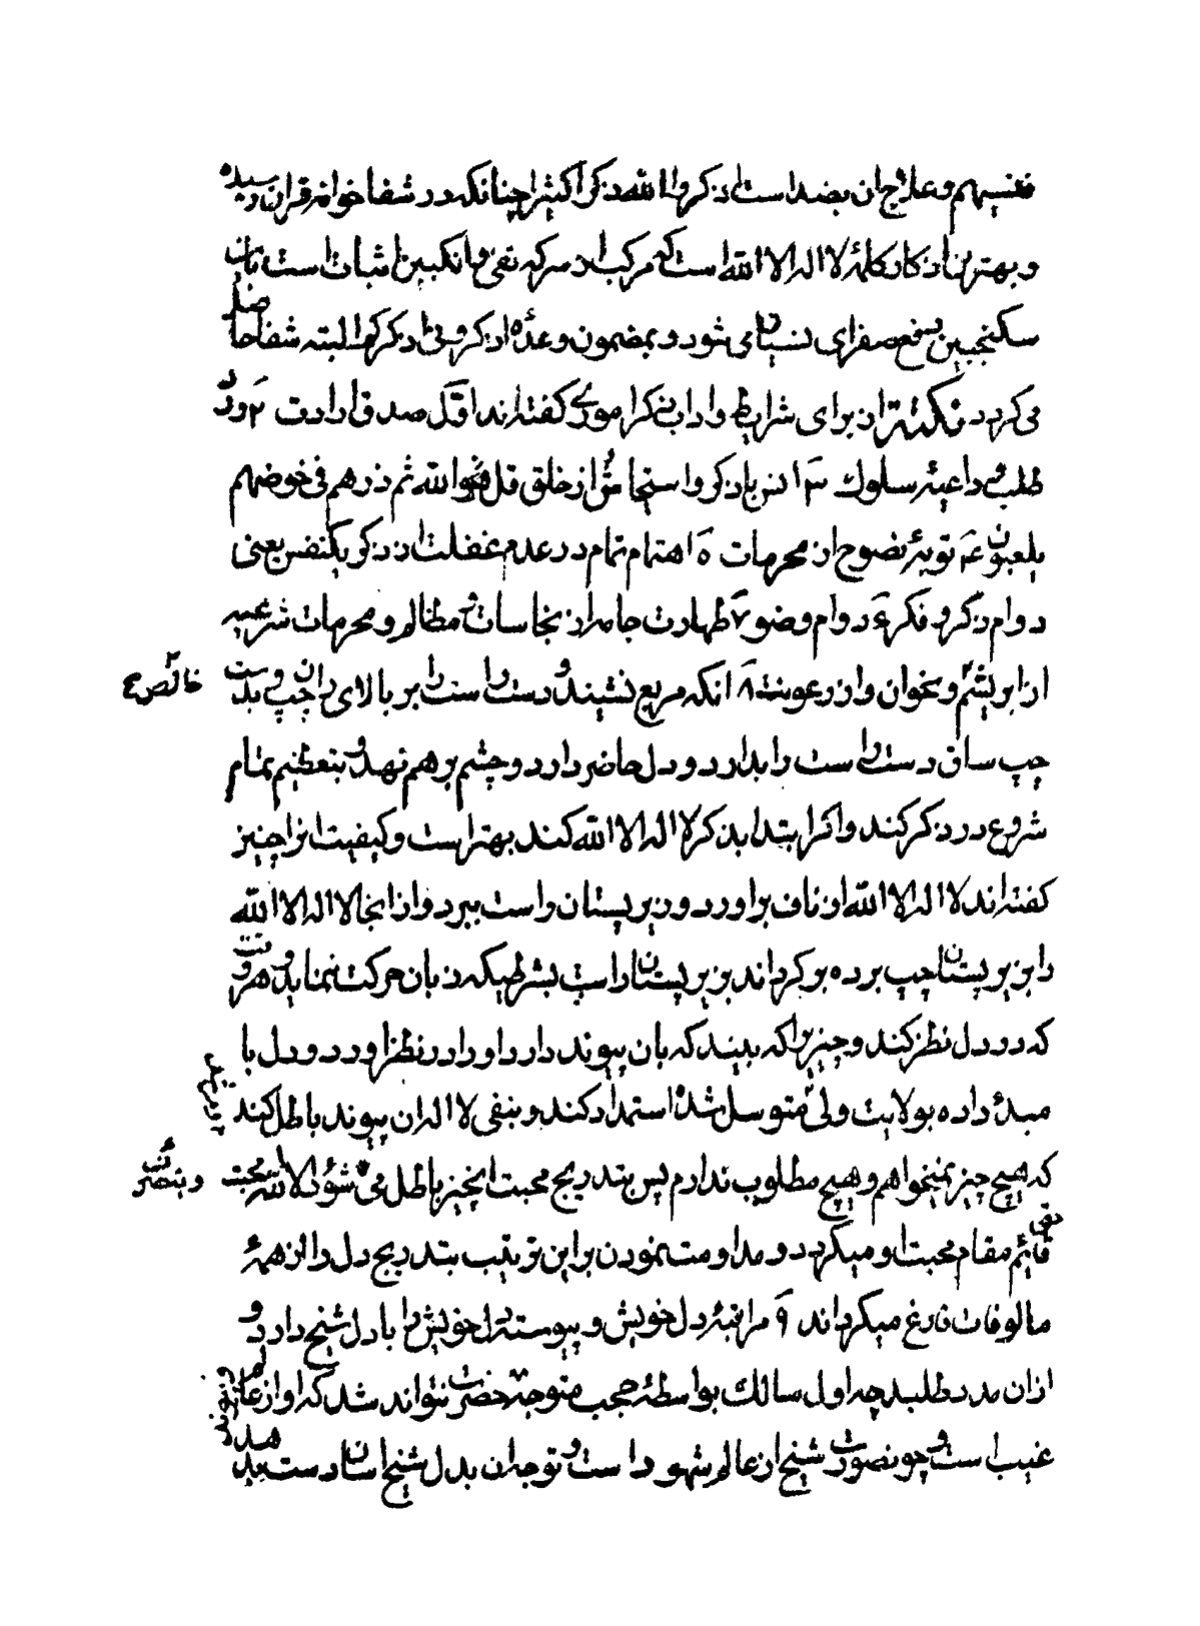 فنسیهم وعلاج ان بضد است اذکروا الله ذکرا کثیرا چنانکه در شفا خوانه قران رسیده
و بهترین اذکار کلمۀ لا اله الا الله است که مرکب از سرکه نفی و انکبین اثبات است بان
سکنجبین رفع صفرای نسیان می شود و بمضمون وعدۀ اذکرونی اذکرکم البته شفا حاصل
می کردد نکته ان برای شرایط واداب ذکر امور کفته اند اول صدق ارادت ۲ درد
طلب و داعیۀ سلوک ۳ انس با ذکر و استیحاش از خلق قل الله ثم ذرهم فی خوضهم
یلعبون ۴ توبۀ نصوح از محرمات ۵ اهتمام تمام در عدم غفلت از ذکر یکنفس یعنی
دوام ذکر و فکر ۶ دوام وضو ۷ طهارت جامه از نجاسات و مظالم و محرمات شرعیه
از ابریشم و بخوان و از رعونت ۸ انکه مربع نشیند و دست راست را بر بالای ران چپ و بدست
خالص ۴
چپ ساق دست راست را بدارد و دل حاضر دارد و چشم بر هم نهد و بتعظیم تمام
شروع در ذکر کند و اکر ابتدا بذکر لا اله الا الله کند بهتر است و کیفیت انرا چنین
کفته اند لا اله الا الله از ناف براورد و زیر پستان راست ببرد و از انجا لا اله الا الله
را بزیر پستان چپ برده بر کرداند بزیر پستان راست بشرطیکه زبان حرکت ننماید و هر وقت
که در دل نظر کند و چیزیرا که بیند که بان پیوند دارد اورا در نظر اورد و دل با
مبدۀ داده بولایت ولی متوسل شده استمداد کند و بنفی لا اله ان پیوند باطل کند
که هیچ چیز نمیخواهم و هیچ مطلوب ندارم پس بتدریج محبت انچیز باطل می شود و الا الله محبت
قائم مقام محبت او میکردد و مداومت نمودن براین ترتیب بتدریج دل را از همۀ
مالوفات فارغ میکرداند ۹ مراقبۀ دل خویش و پیوسته دل خویش را با دل شیخ دارد و
ازان مدد طلبد چه اول سالک بواسطۀ حجب متوجه حضرت نتواند شد که او از عالم
غیب است و چون صورت شیخ از عالم شهود است و توجه ان بدل شیخ اسان دست بدهد